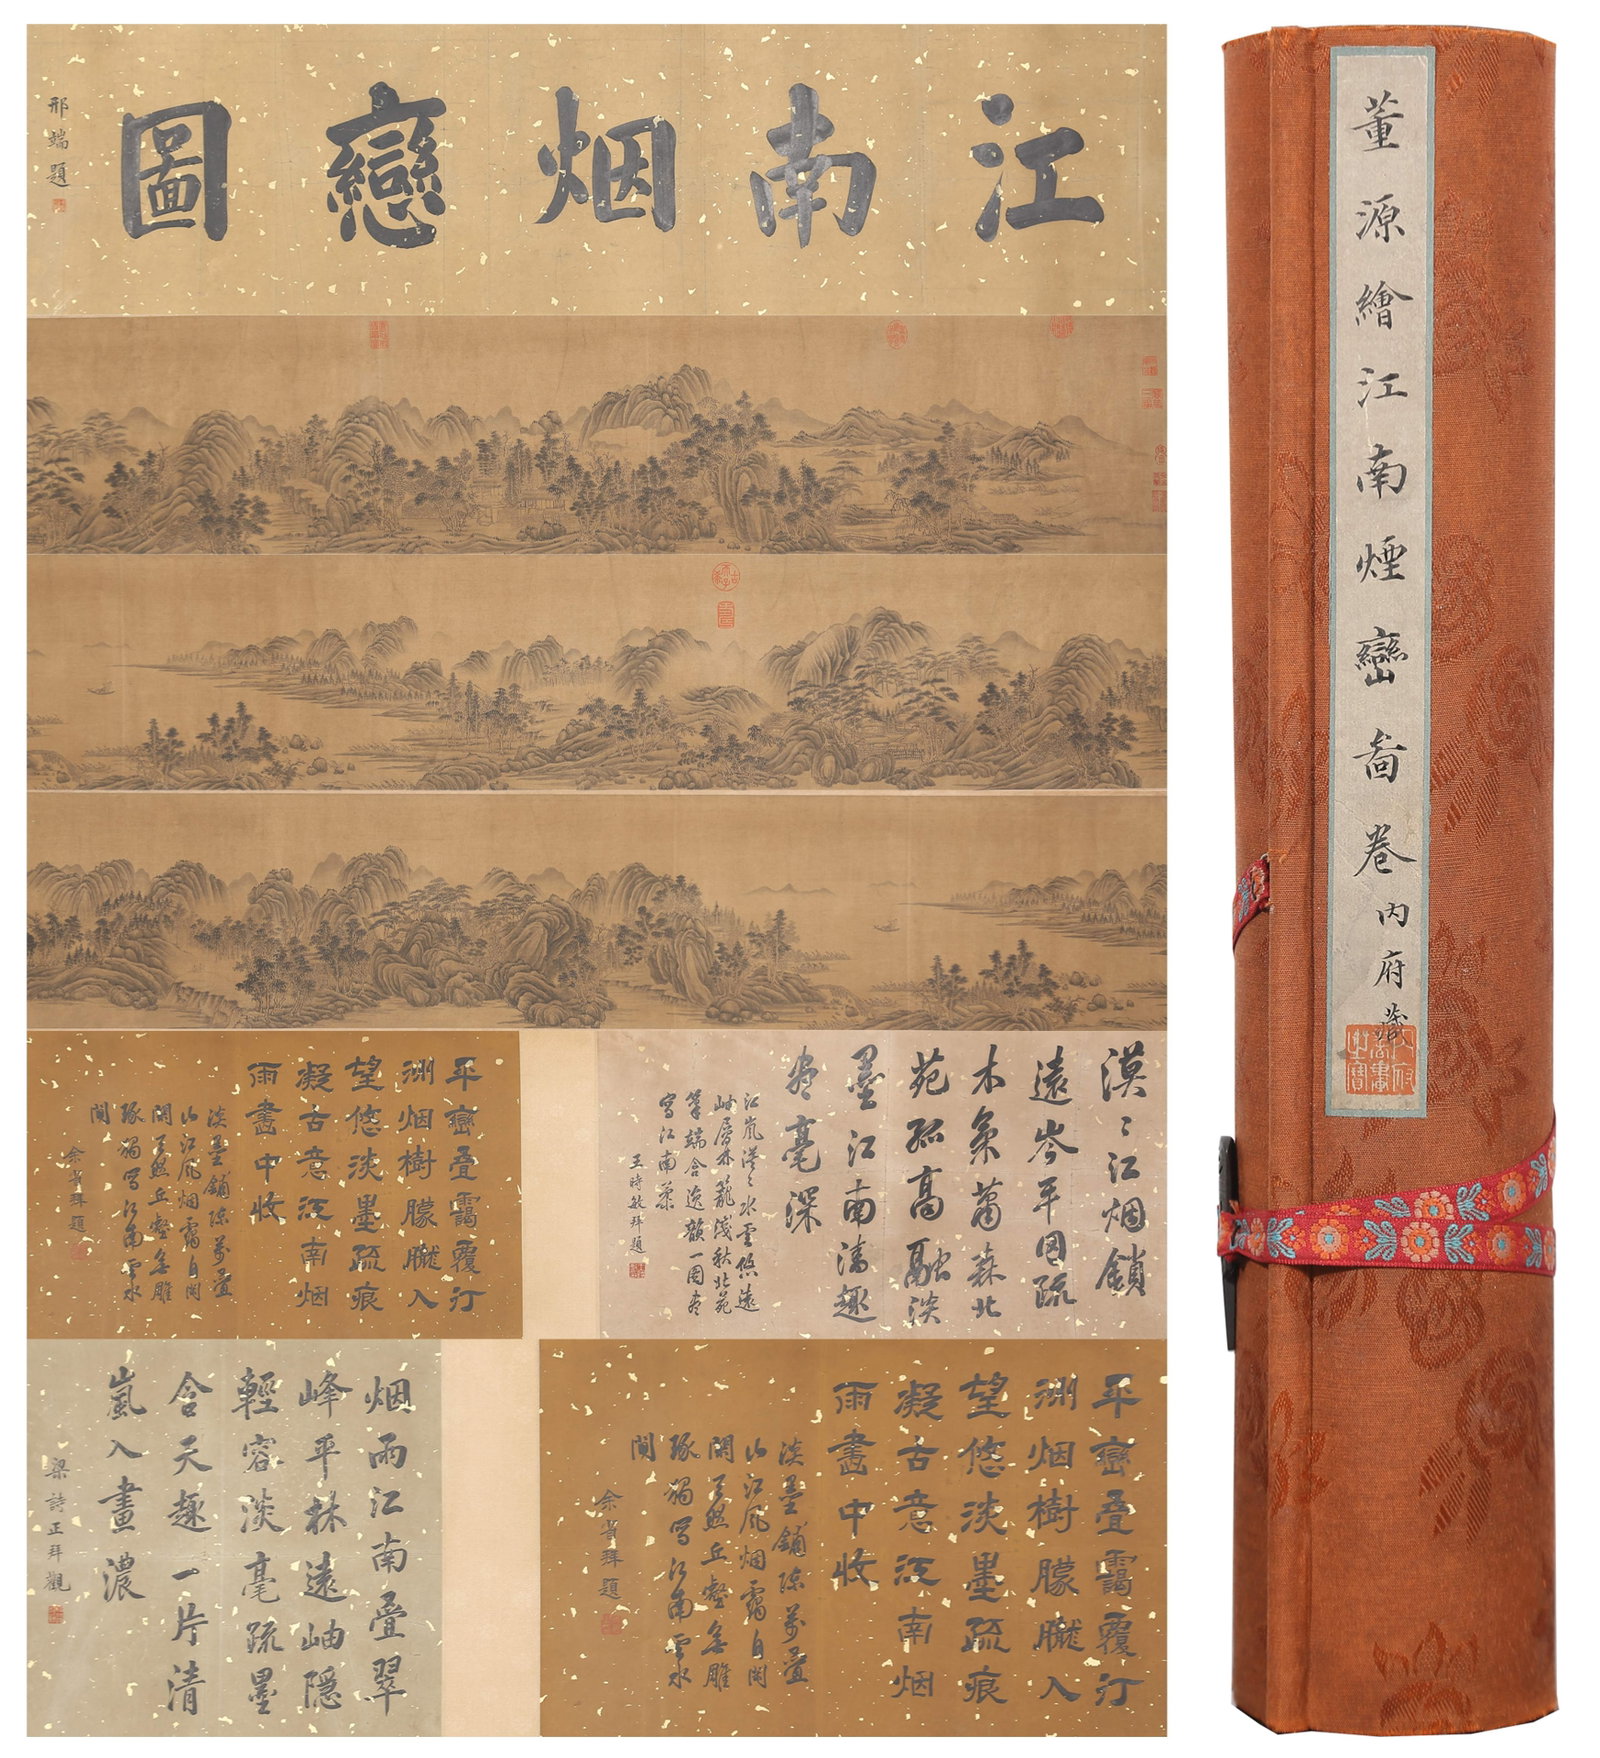 江南烟巒圖
邢端題
漠漠江烟鎖
遠岑平因疏
木氣蕭森北
苑孤高融淡
墨江南清趣
毫深
江嵐漠漠水雲悠遠
岫層林籠淺秋北苑
筆端含逸韻一圖
寫江南
王時敏拜題
平巒疊靄覆汀
洲烟樹朦朧入
望悠淡墨疏痕
凝古意江南烟
雨畫中收
淡墨鋪陳萬疊
山江風烟靄自閑
閑天然丘壑無雕
琢獨寫江南雲水
間
余省拜題
平巒疊靄覆汀
洲烟樹朦朧入
望悠淡墨疏痕
凝古意江南烟
雨畫中收
淡墨鋪陳萬疊
山江風烟靄自閑
閑天然丘壑無雕
琢獨寫江南雲水
間
余省拜題
烟雨江南疊翠
峰平林遠岫隱
輕容淡毫疏墨
含天趣一片清
嵐入畫濃
梁詩正拜觀
董源繪江南煙巒啚卷內府藏